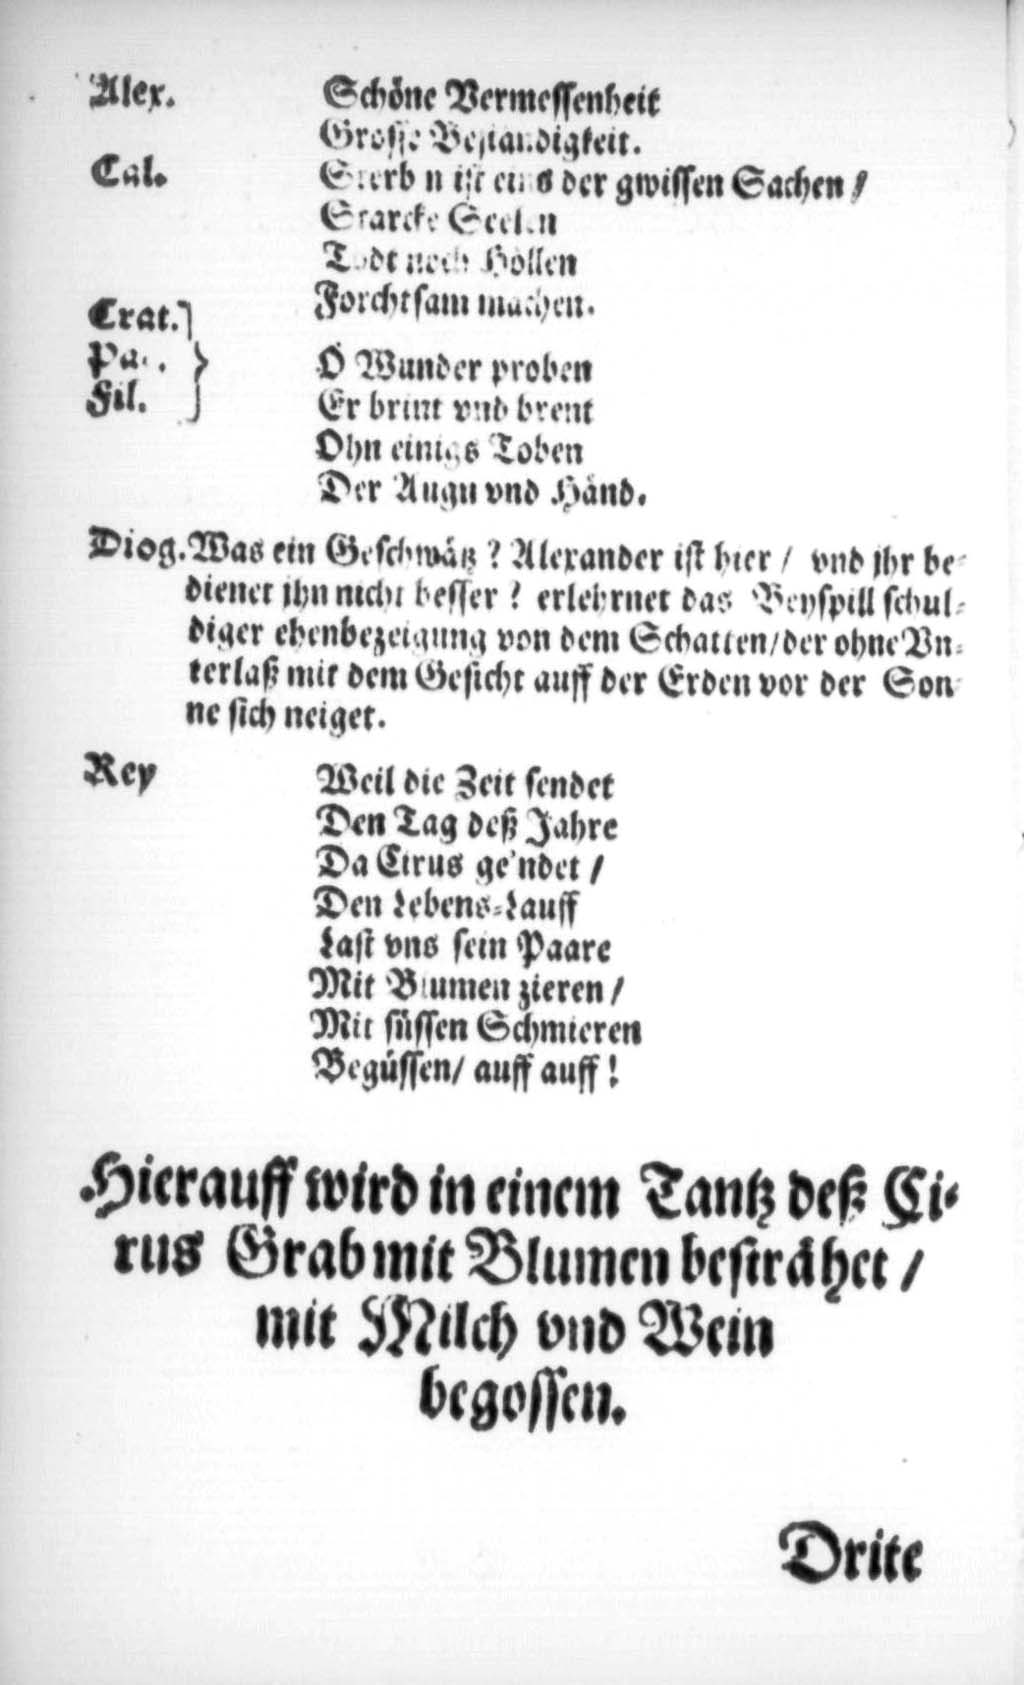 Alex. Schöne Vermessenheit
Grosse Beständigkeit.
Cal. Sterben ist eins der gwissen Sachen /
Starcke Seelen
Todt noch Höllen
Forchtsam machen.
Crat.
Fil.
O Wunder proben
Er brint vnd brent
Ohn einigs Toben
Der Augn vnd Händ.
Diog. Was ein Geschwätz? Alexander ist hier / vnd jhr be-
dienet jhn nicht besser? erlehrnet das Beyspill schul-
diger ehenbezeigung von dem Schatten/der ohne Vn-
terlaß mit dem Gesicht auff der Erden vor der Son-
ne sich neiget.
Rey Weil die Zeit sendet
Den Tag deß Jahre
Da Cirus ge'ndet /
Den Lebens-Lauff
Last vns sein Paare
Mit Blumen zieren /
Mit süssen Schmieren
Begüssen/ auff auff!
Hierauff wird in einem Tantz deß Ci-
rus Grab mit Blumen besträhet /
mit Milch vnd Wein
begossen.
Drite